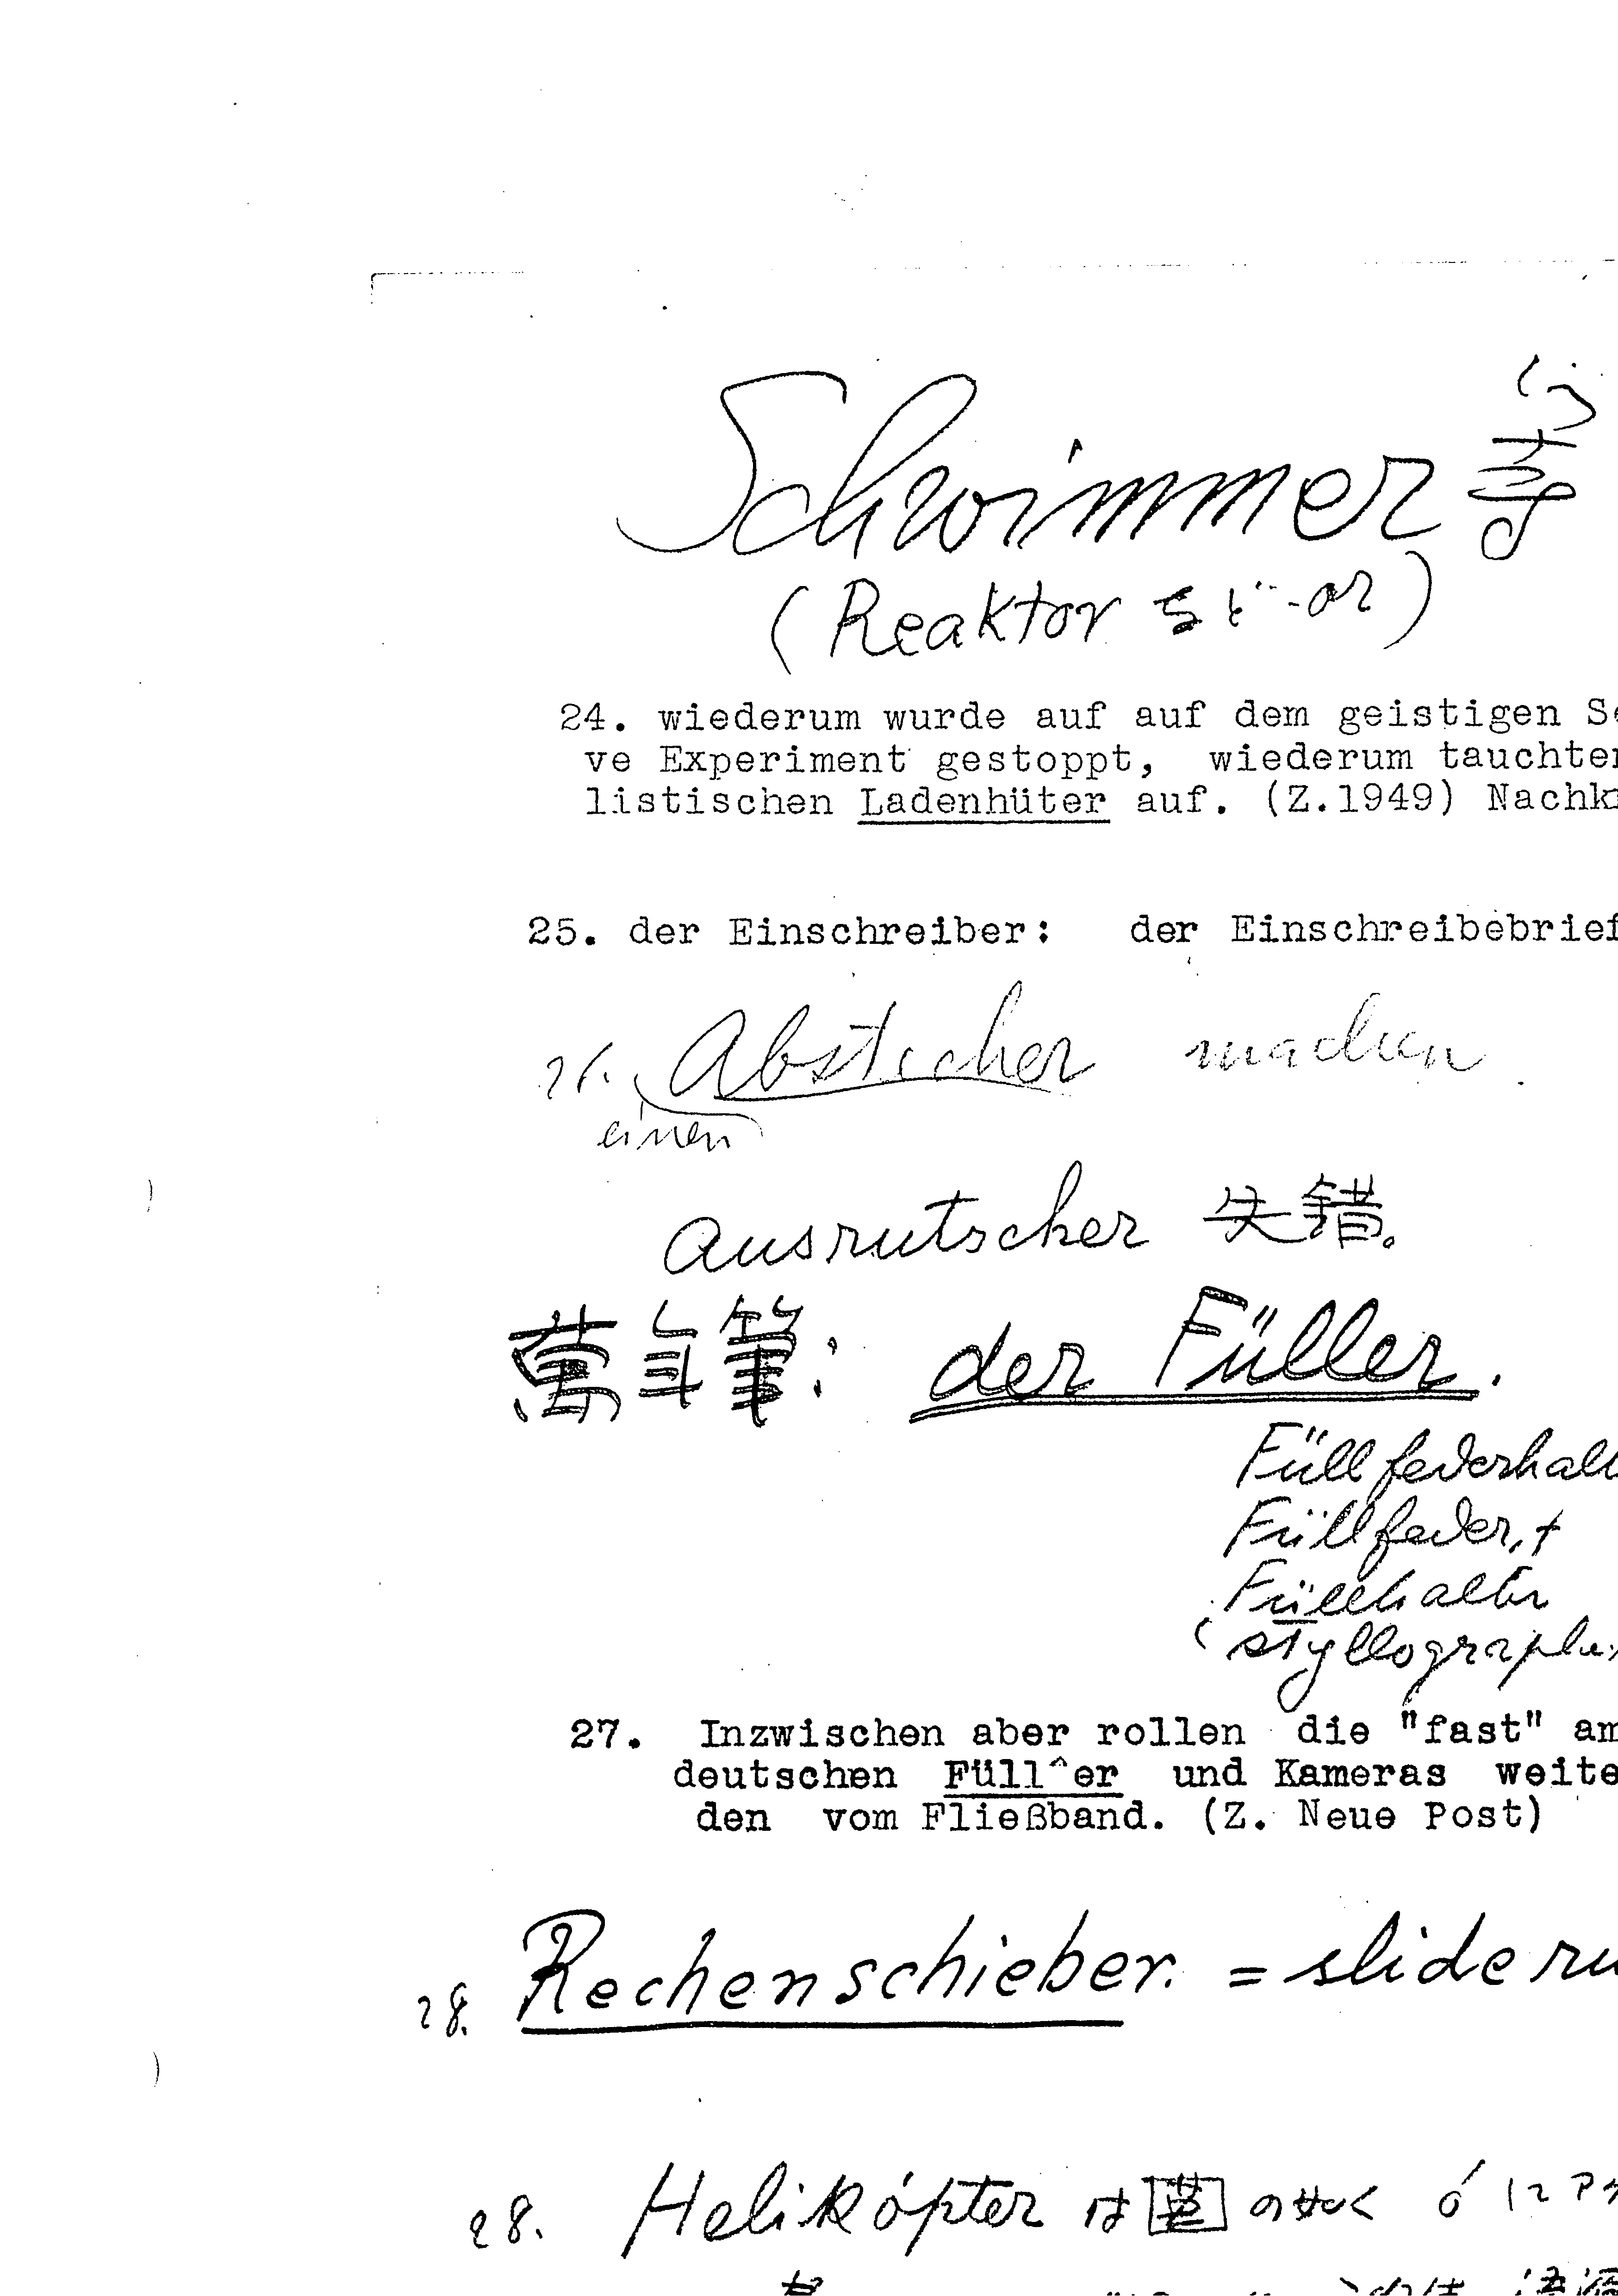 Schwimmer
(Reaktor など -or)
24. wiederum wurde auf auf dem geistigen
ve Experiment gestoppt, wiederum tauchten
listischen Ladenhüter auf. (Z.1949)
25. der Einschreiber: der Einschreibebrief
26. Abstecher machen
einen
Ausrutscher 失錯。
萬年筆: der Füller.
Füllfederhalt
Füllfeder, f
Füllhalter
27. Inzwischen aber rollen die "fast" am
deutschen Füll^er und Kameras weite
den vom Fließband. (Z. Neue Post)
28. Rechenschieber. = slide ru
28. Helikópter は 英 の如く ó にア